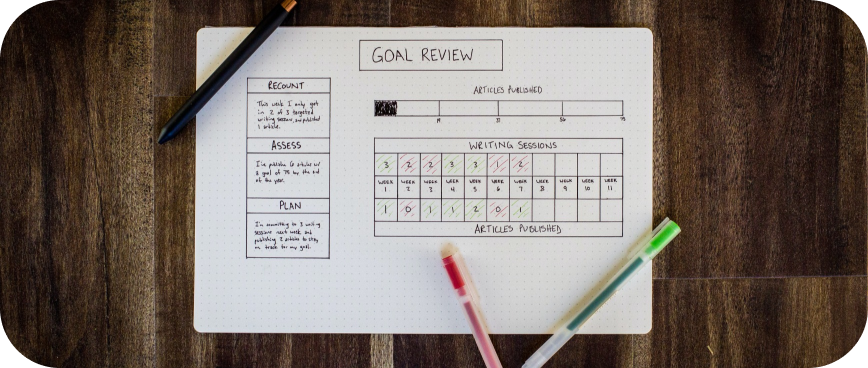 GOAL REVIEW
RECOUNT
This week I only got
in 2 of 3 targeted
writing sessions, and published
1 article.
ASSESS
I've publishe 6 articles w/
a goal of 75 by the end
of the year.
PLAN
I'm committing to 3 writing
sessions next week and
publishing 2 articles to stay
on track for my goal.
ARTICLES PUBLISHED
56 75
WRITING SESSIONS
3 2 2 3 3 1 2
WEEK WEEK WEEK WEEK WEEK WEEK WEEK WEEK WEEK WEEK WEEK
1 2 3 4 5 6 7 8 9 10 11
1 0 1 1 2 0 1
ARTICLES PUBLISHED